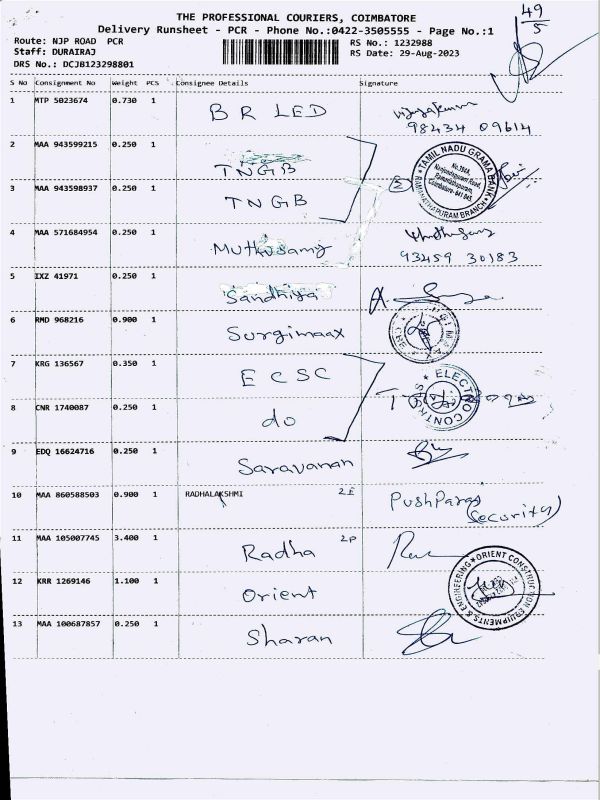 THE PROFESSIONAL COURIERS, COIMBATORE
Delivery Runsheet - PCR - Phone No.:0422-3505555 - Page No.:1
49
5
Route: NJP ROAD PCR
RS No.: 1232988
Staff: DURAIRAJ
RS Date: 29-Aug-2023
DRS No.: DCJB123298801
S No Consignment No Weight PCS Consignee Details Signature
1 MTP 5023674 0.730 1 BR LED vijayakumar
98434 09614
2 MAA 943599215 0.250 1 TNGB
3 MAA 943598937 0.250 1 TNGB
2
TAMIL NADU GRAMA BANK
RAMANATHAPURAM BRANCH
4 MAA 571684954 0.250 1 Muthusamy Muthusamy
93459 30183
5 IXZ 41971 0.250 1 Sandhiya
6 RMD 968216 0.900 1 Surgimaax
7 KRG 136567 0.350 1 ECSC
ELECTRO CONTROLS
8 CNR 1740087 0.250 1 do
9 EDQ 16624716 0.250 1 Saravanan
10 MAA 860588503 0.900 1 RADHALAKSHMI 2E PushParaj
(Security)
11 MAA 105007745 3.400 1 Radha 2P
12 KRR 1269146 1.100 1 Orient
ORIENT CONSTRUCTION EQUIPMENTS & ENGINEERING
13 MAA 100687857 0.250 1 Sharan